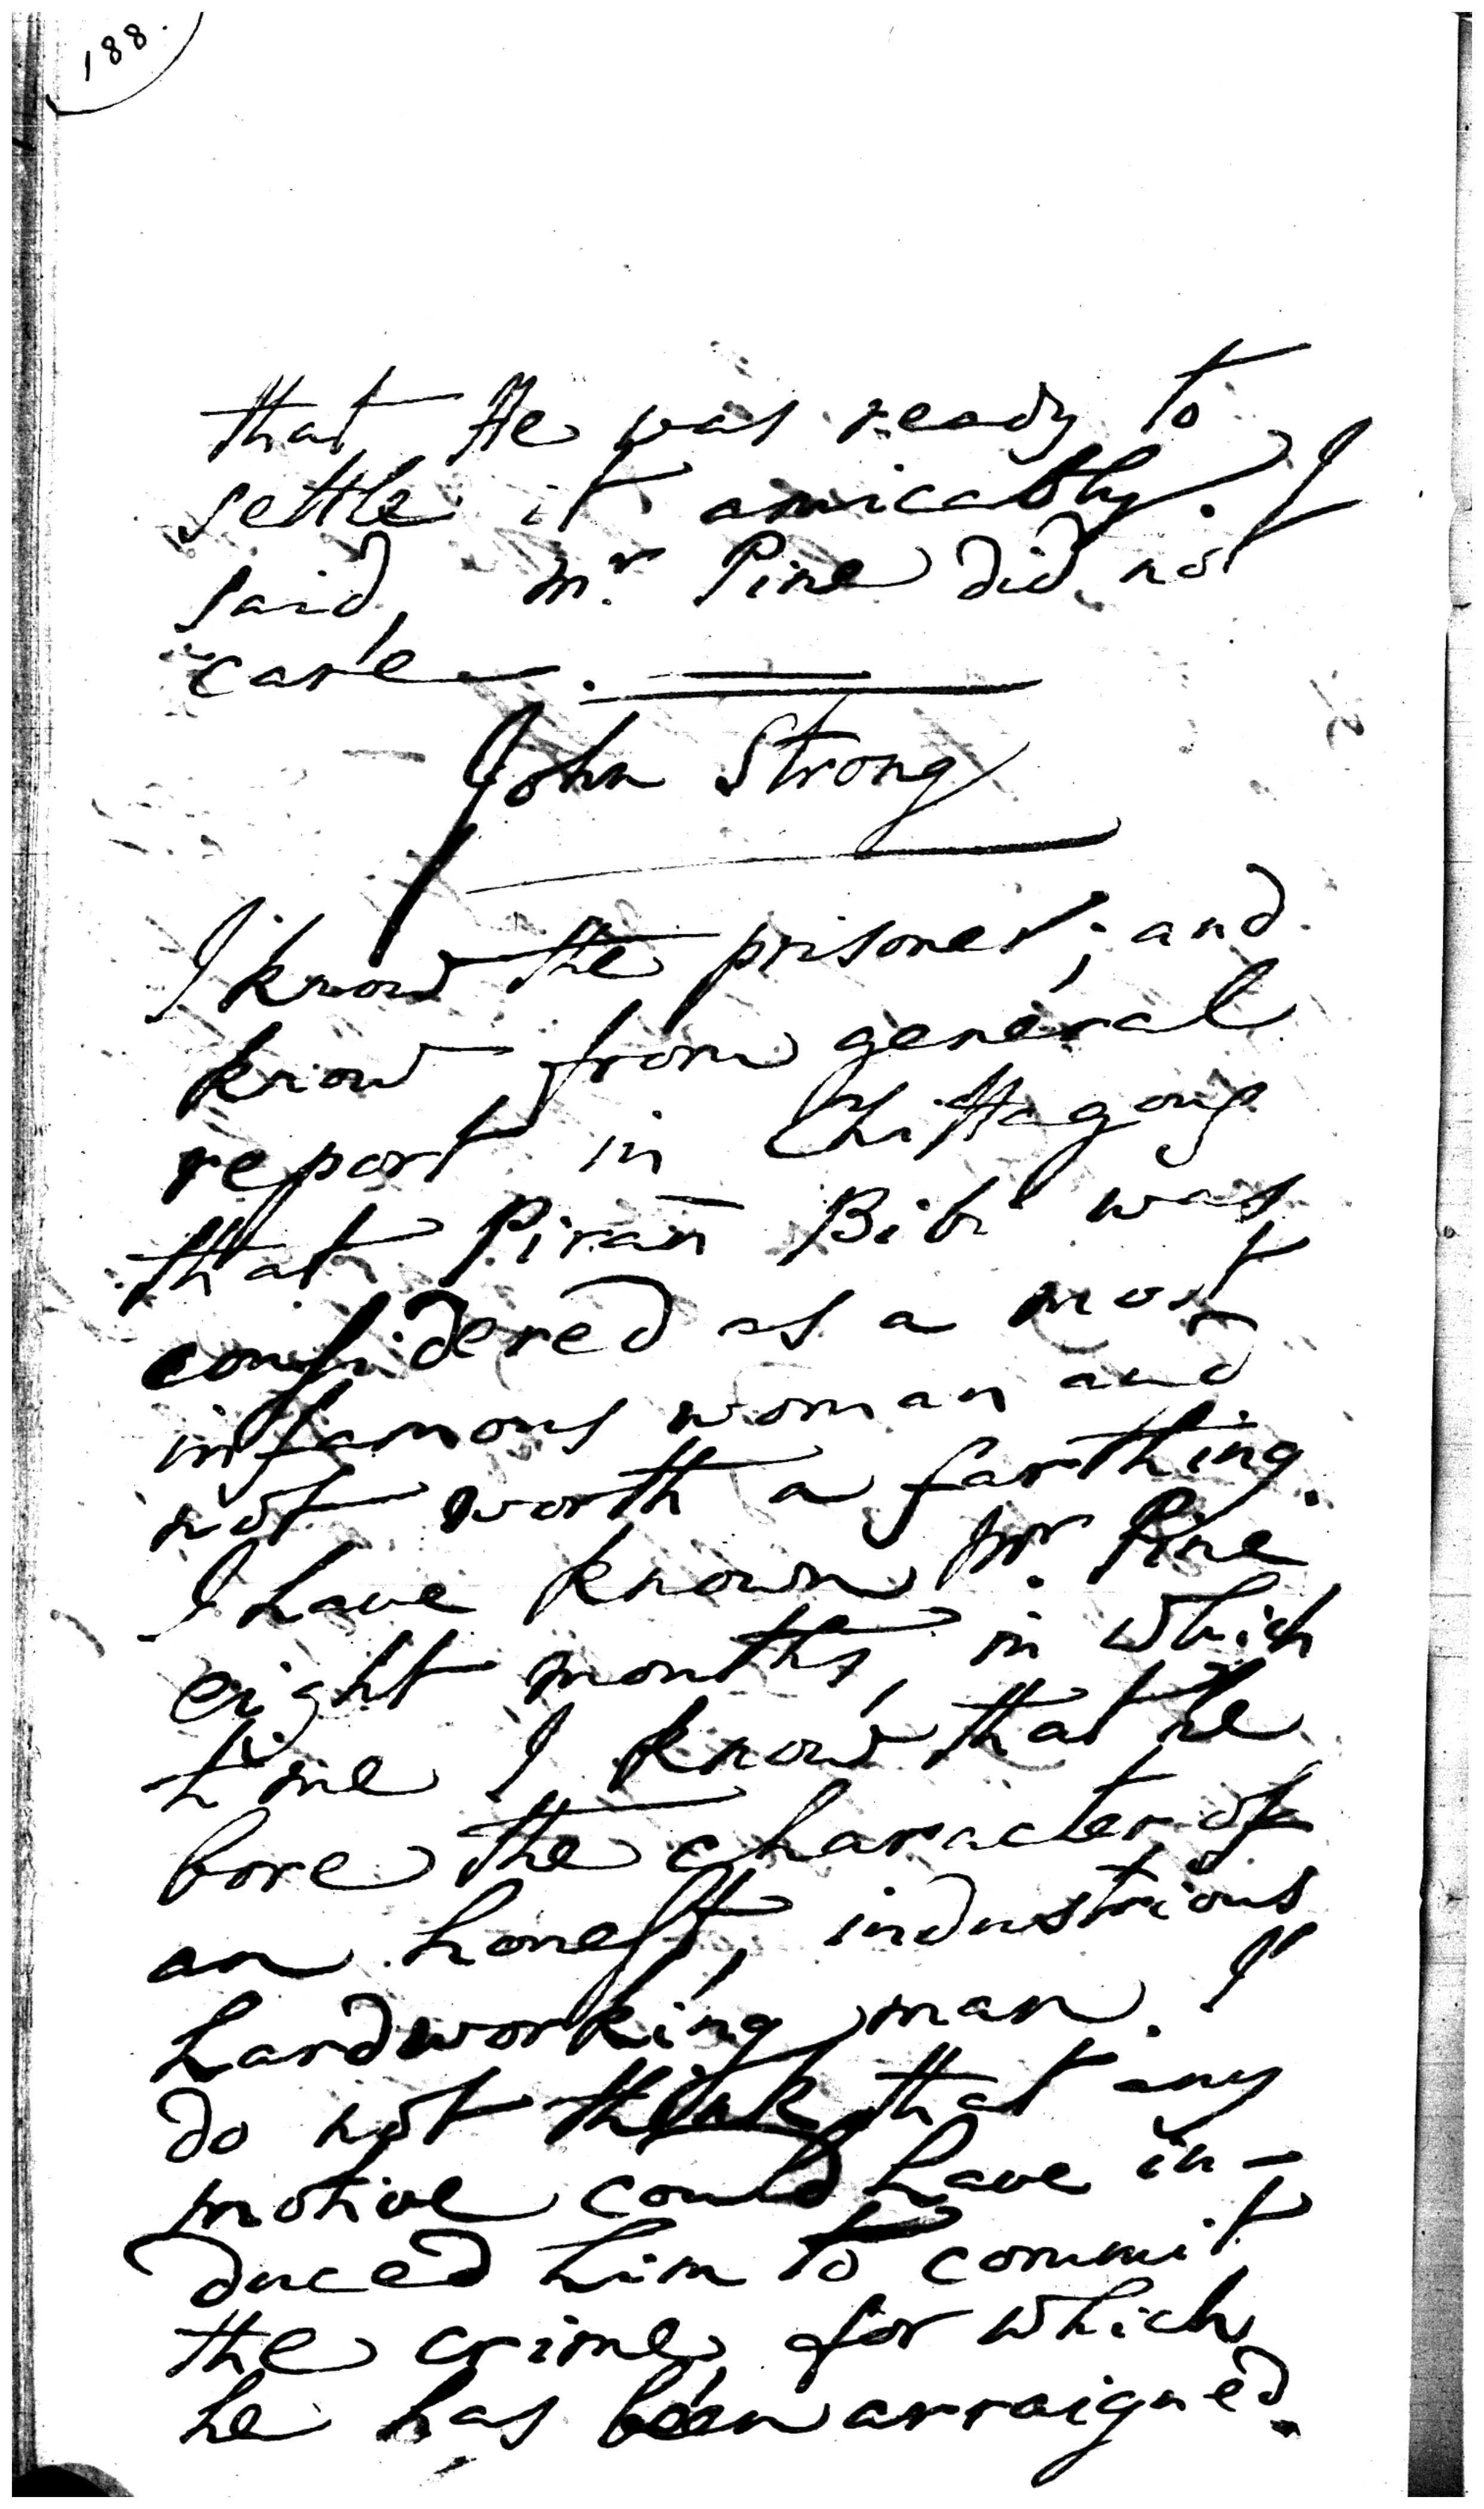 188.
that He was ready to
settle it amicably. I
said, Mr. Pine did not
care.
John Strong
I know the prisoner; and
know from general
report in Chittagong
that Piran Bibi was
considered as a most
infamous woman and
not worth a farthing.
I have known Mr. Pine
eight months, in which
time I know that he
bore the character of
an honest, industrious
hardworking man. I
do not think that any
motive could have in-
duced him to commit
the crime for which
he has been arraigned.